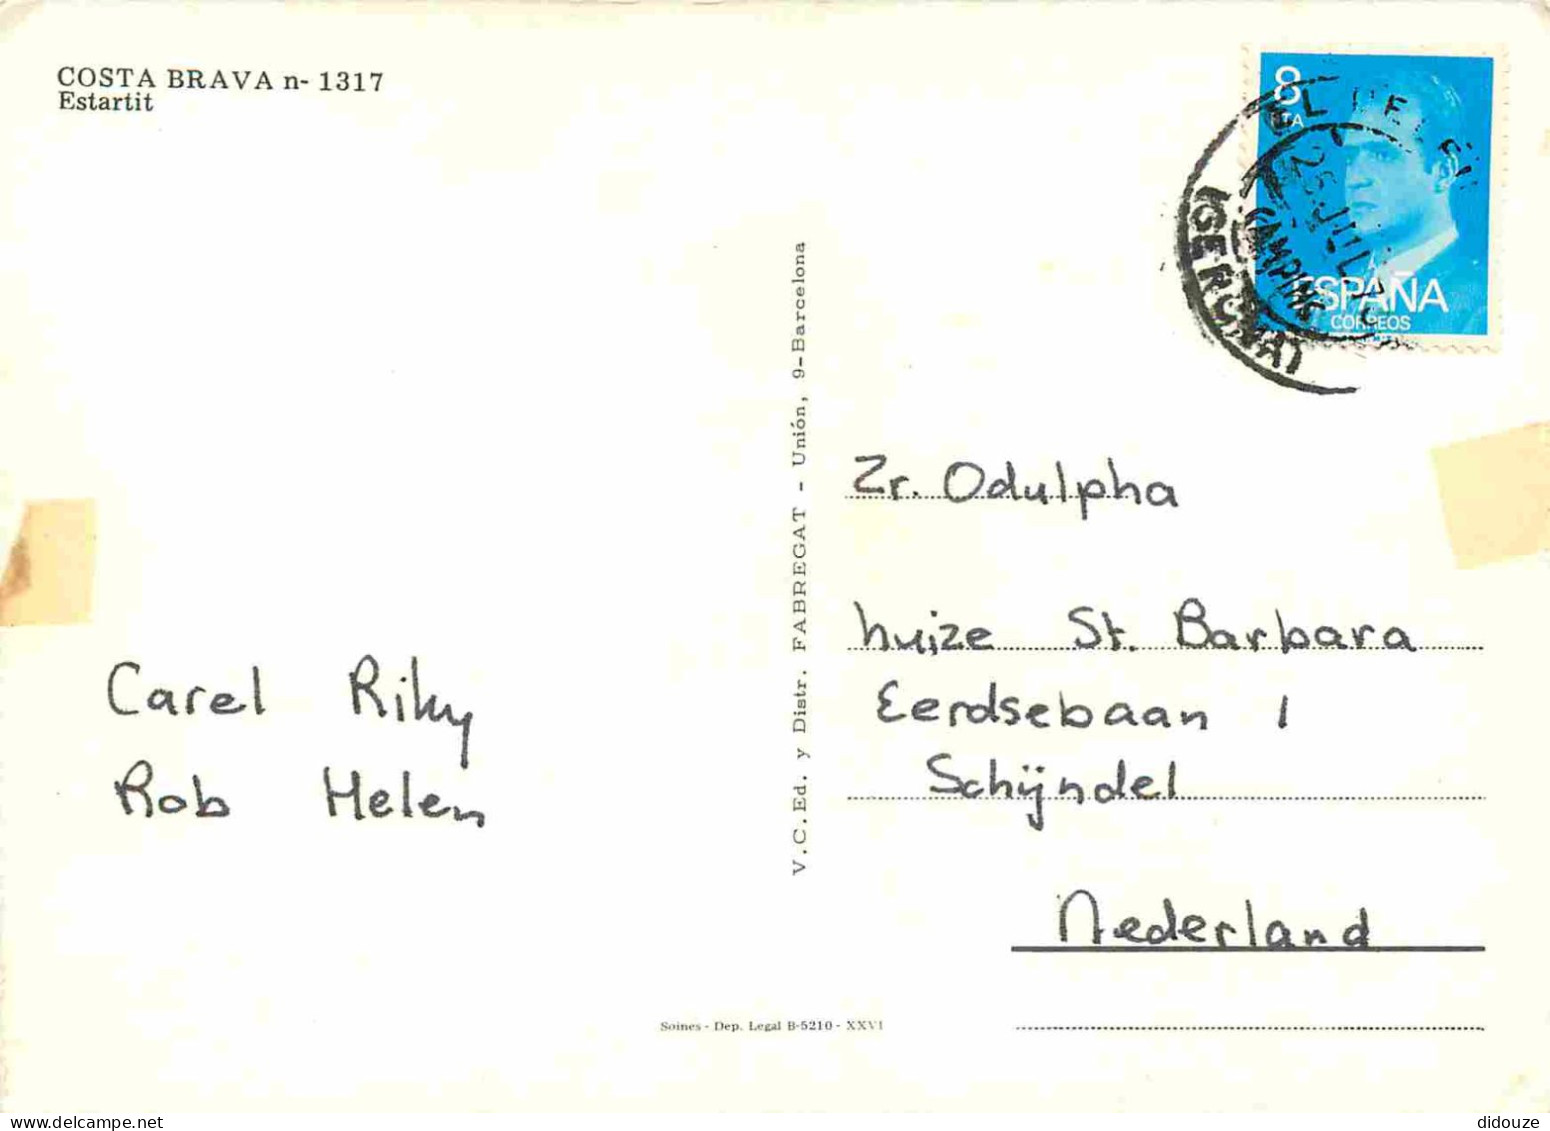 COSTA BRAVA n- 1317
Estartit
8
PTA
ESPAÑA
CORREOS
(GERONA)
CAMPING
V.C.Ed. y Distr. FABREGAT - Unión, 9-Barcelona
Zr. Odulpha
huize St. Barbara
Eerdsebaan 1
Schijndel
Nederland
Carel Riky
Rob Helen
Soines - Dep. Legal B-5210 - XXVI
didouze